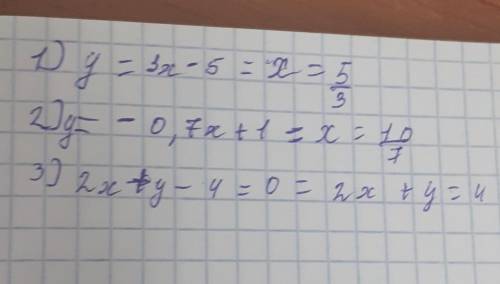 1) y = 3x - 5 = x = 5/3
2) y = - 0,7x + 1 = x = 10/7
3) 2x + y - 4 = 0 = 2x + y = 4